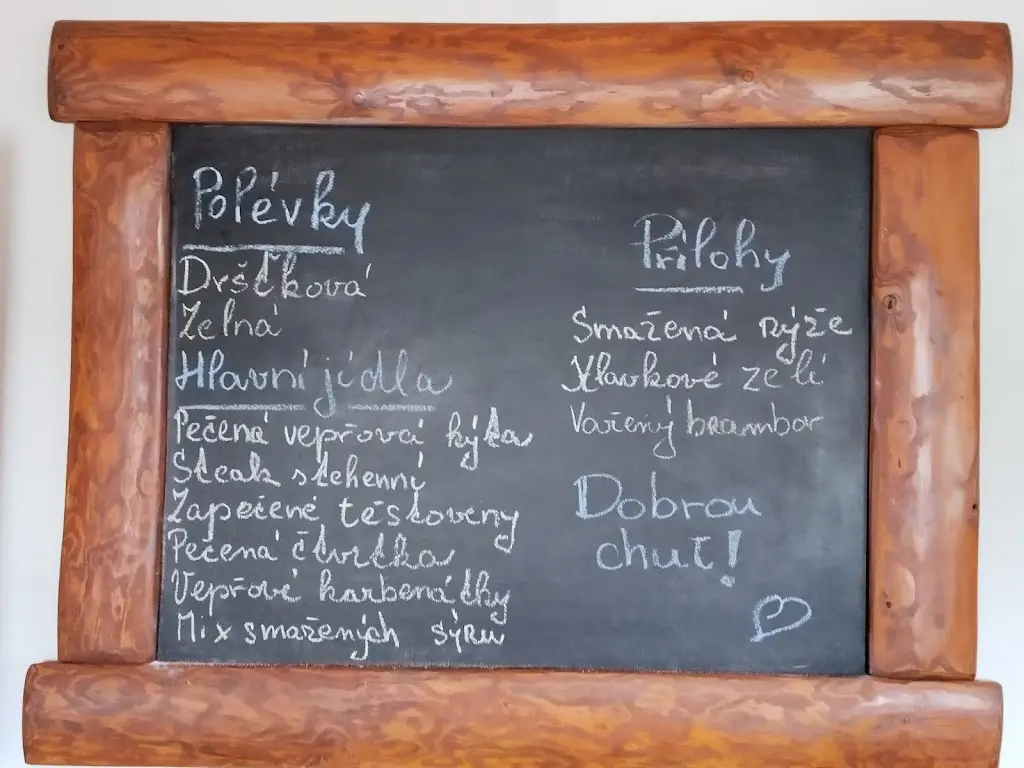 Polévky
Dršťková
Zelná
Hlavní jídla
Pečená vepřová kýta
Steak stehenní
Zapečené těstoviny
Pečená čtvrtka
Vepřové karbenátky
Mix smažených sýru
Přílohy
Smažená rýže
Hlávkové zelí
Vařený brambor
Dobrou
chuť!